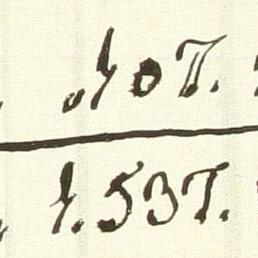 , 107.
, 1.537.